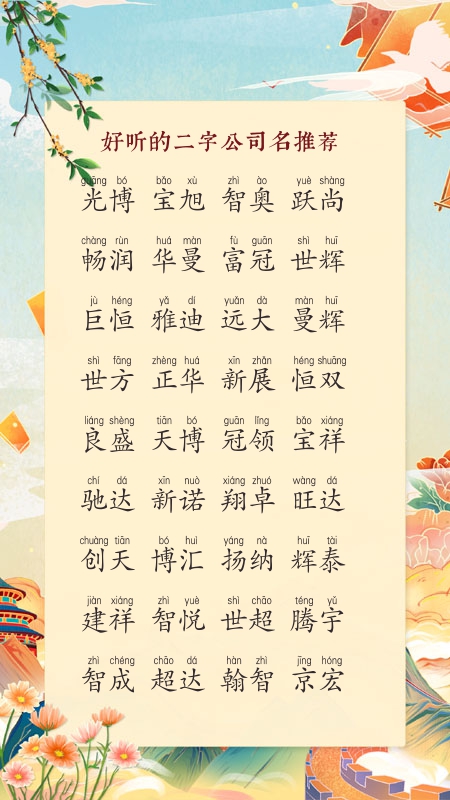 好听的二字公司名推荐
guāng bó bǎo xù zhì ào yuè shàng
光博 宝旭 智奥 跃尚
chàng rùn huá màn fù guān shì huī
畅润 华曼 富冠 世辉
jù héng yǎ dí yuǎn dà màn huī
巨恒 雅迪 远大 曼辉
shì fāng zhèng huá xīn zhǎn héng shuāng
世方 正华 新展 恒双
liáng shèng tiān bó guān lǐng bǎo xiáng
良盛 天博 冠领 宝祥
chí dá xīn nuò xiáng zhuó wàng dá
驰达 新诺 翔卓 旺达
chuàng tiān bó huì yáng nà huī tài
创天 博汇 扬纳 辉泰
jiàn xiáng zhì yuè shì chāo téng yǔ
建祥 智悦 世超 腾宇
zhì chéng chāo dá hàn zhì jīng hóng
智成 超达 翰智 京宏